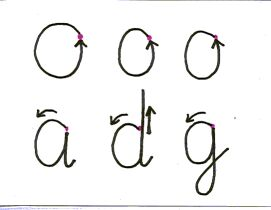 O O O
a d g